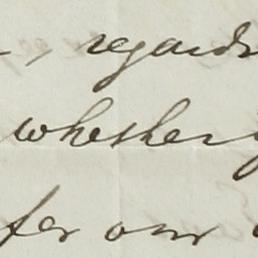 , regards
whether
for our